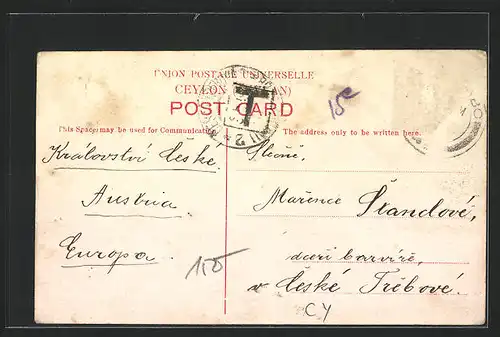 UNION POSTALE UNIVERSELLE
CEYLON
POST CARD
This Space may be used for Communication.
The address only to be written here.
T
15c
Království České
Austria
Europa
Slečně
Mařence Štandlové,
dceři barvíře,
v České Třebové.
155
CY